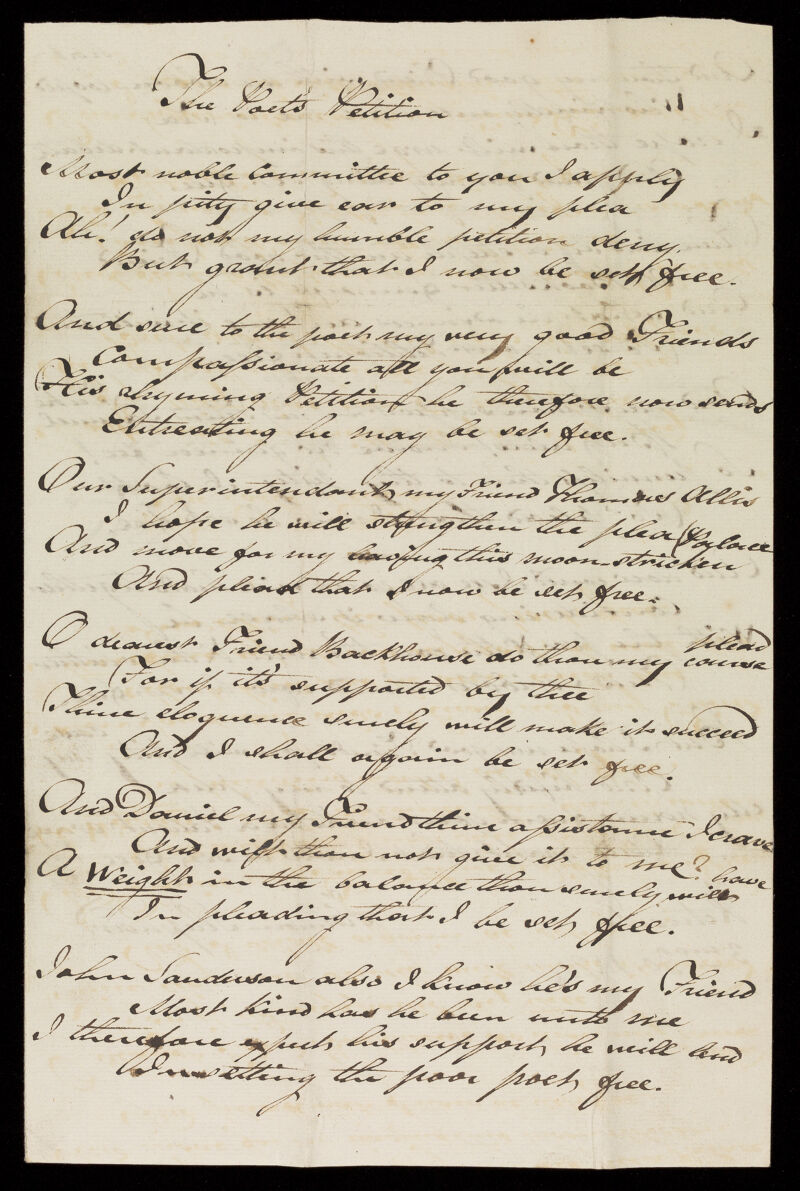 The Poets Petition
Most noble Committee to you I apply
In pity give ear to my plea
Ah! do not my humble petition deny.
But grant that I now be set free.
And sure to the poet my very good Friends
Compassionate all you will be
His rhyming Petition he therefore now sends
Entreating he may be set free.
Our Superintendant, my Friend Thomas Allis
I hope he will strengthen the plea
And move for my leaving this moon-stricken Palace
And plead that I now be set free.
O dearest Friend Backhouse do thou my cause plead
For if it's supported by thee
Thine eloquence surely will make it succeed
And I shall again be set free.
And Daniel my Friend thine assistance I crave
And wilt thou not give it to me?
A Weight in the balance thou surely wilt have
In pleading that I be set free.
John Sanderson also I know he's my Friend
Most kind has he been unto me
I therefore expect his support he will lend
In setting the poor poet free.